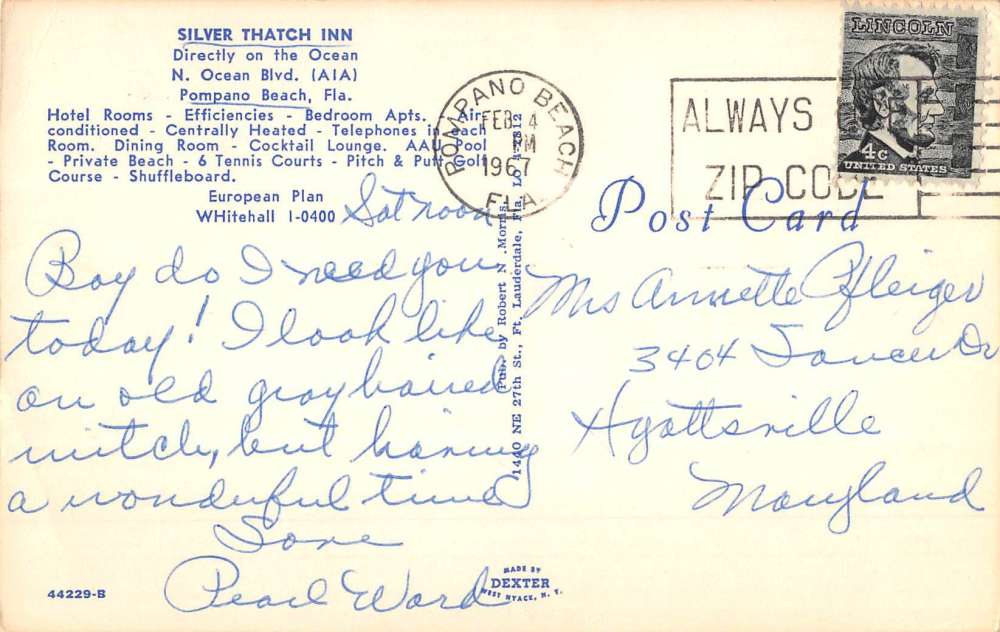 SILVER THATCH INN
Directly on the Ocean
N. Ocean Blvd. (A1A)
Pompano Beach, Fla.
Hotel Rooms - Efficiencies - Bedroom Apts. - Air
conditioned - Centrally Heated - Telephones in each
Room. Dining Room - Cocktail Lounge. AAU Pool
- Private Beach - 6 Tennis Courts - Pitch & Putt Golf
Course - Shuffleboard.
European Plan
WHitehall 1-0400
Sat noon
Boy do I need you
today! I look like
an old gray haired
witch, but having
a wonderful time
Love
Pearl Ward
44229-B
MADE BY
DEXTER
WEST NYACK, N. Y.
Pub. by Robert N. Morris,
1440 NE 27th St., Ft. Lauderdale, Fla.
POMPANO BEACH
FEB 4
PM
1967
FLA
ALWAYS
ZIP CODE
LINCOLN
4c
UNITED STATES
Post Card
Mrs Annette Pfleiger
3404 Dr
Hyattsville
Maryland